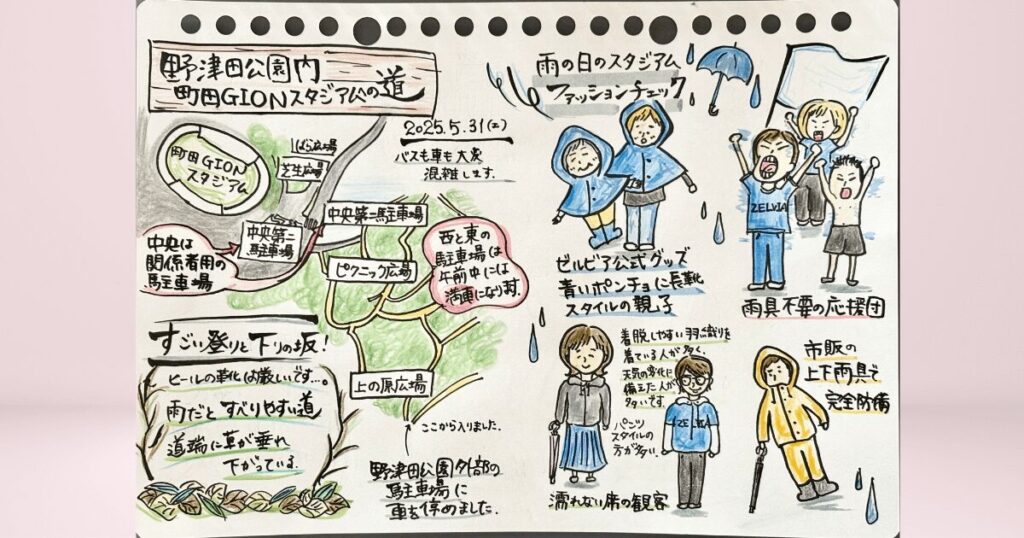 野津田公園内
町田GIONスタジアムへの道
2025.5.31(土)
バスも車も大変
混雑します。
ばら広場
芝生広場
町田GION
スタジアム
中央第一駐車場
中央第二
駐車場
中央は
関係者用の
駐車場
ピクニック広場
西と東の
駐車場は
午前中には
満車になります。
上の原広場
ここから入りました。
野津田公園外部の
駐車場に
車を停めました。
すごい登りと下りの坂!
ヒールの靴は厳しいです…。
雨だとすべりやすい道
道端に草が垂れ
下がっている。
雨の日のスタジアム
ファッションチェック
ZELVIA
ゼルビア公式グッズ
青いポンチョに長靴
スタイルの親子
雨具不要の応援団
着脱しやすい羽織りを
着ている人が多く、
天気の変化に
備えた人が
多いです
パンツ
スタイルの
方が多い。
ZELVIA
濡れない席の観客
市販の
上下雨具で
完全防備